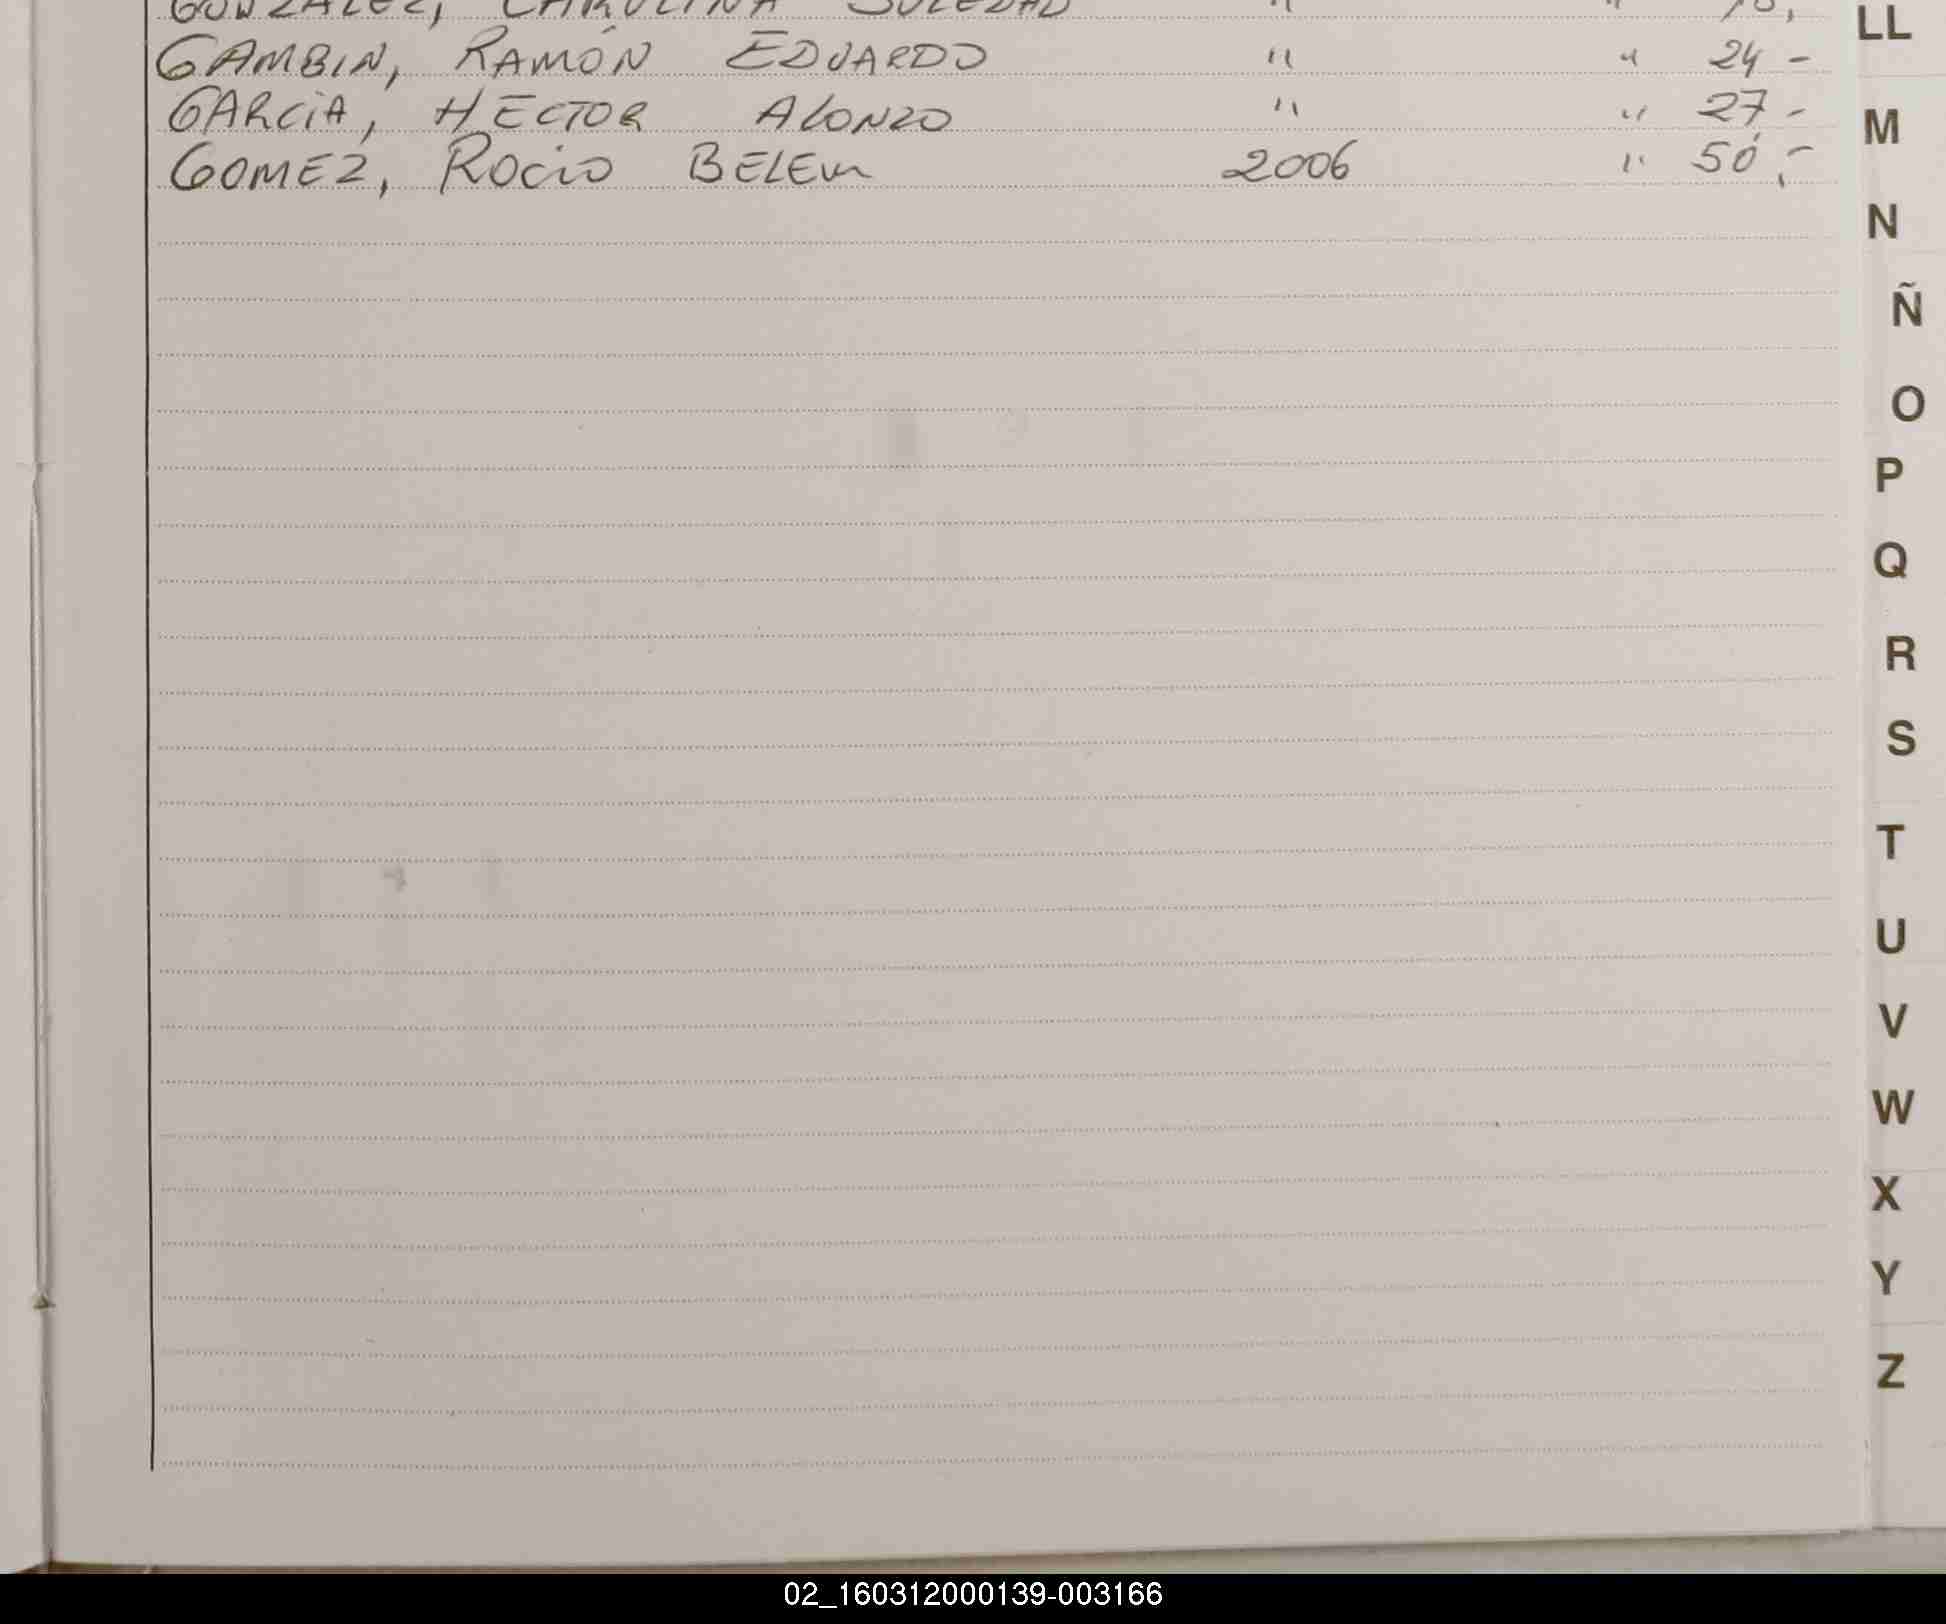 GONZALEZ, CAROLINA SOLEDAD " "
GAMBIN, RAMÓN EDUARDO " " 24 -
GARCIA, HECTOR ALONZO " " 27, -
GOMEZ, ROCIO BELEN 2006 " 50, -
LL
M
N
Ñ
O
P
Q
R
S
T
U
V
W
X
Y
Z
02_160312000139-003166